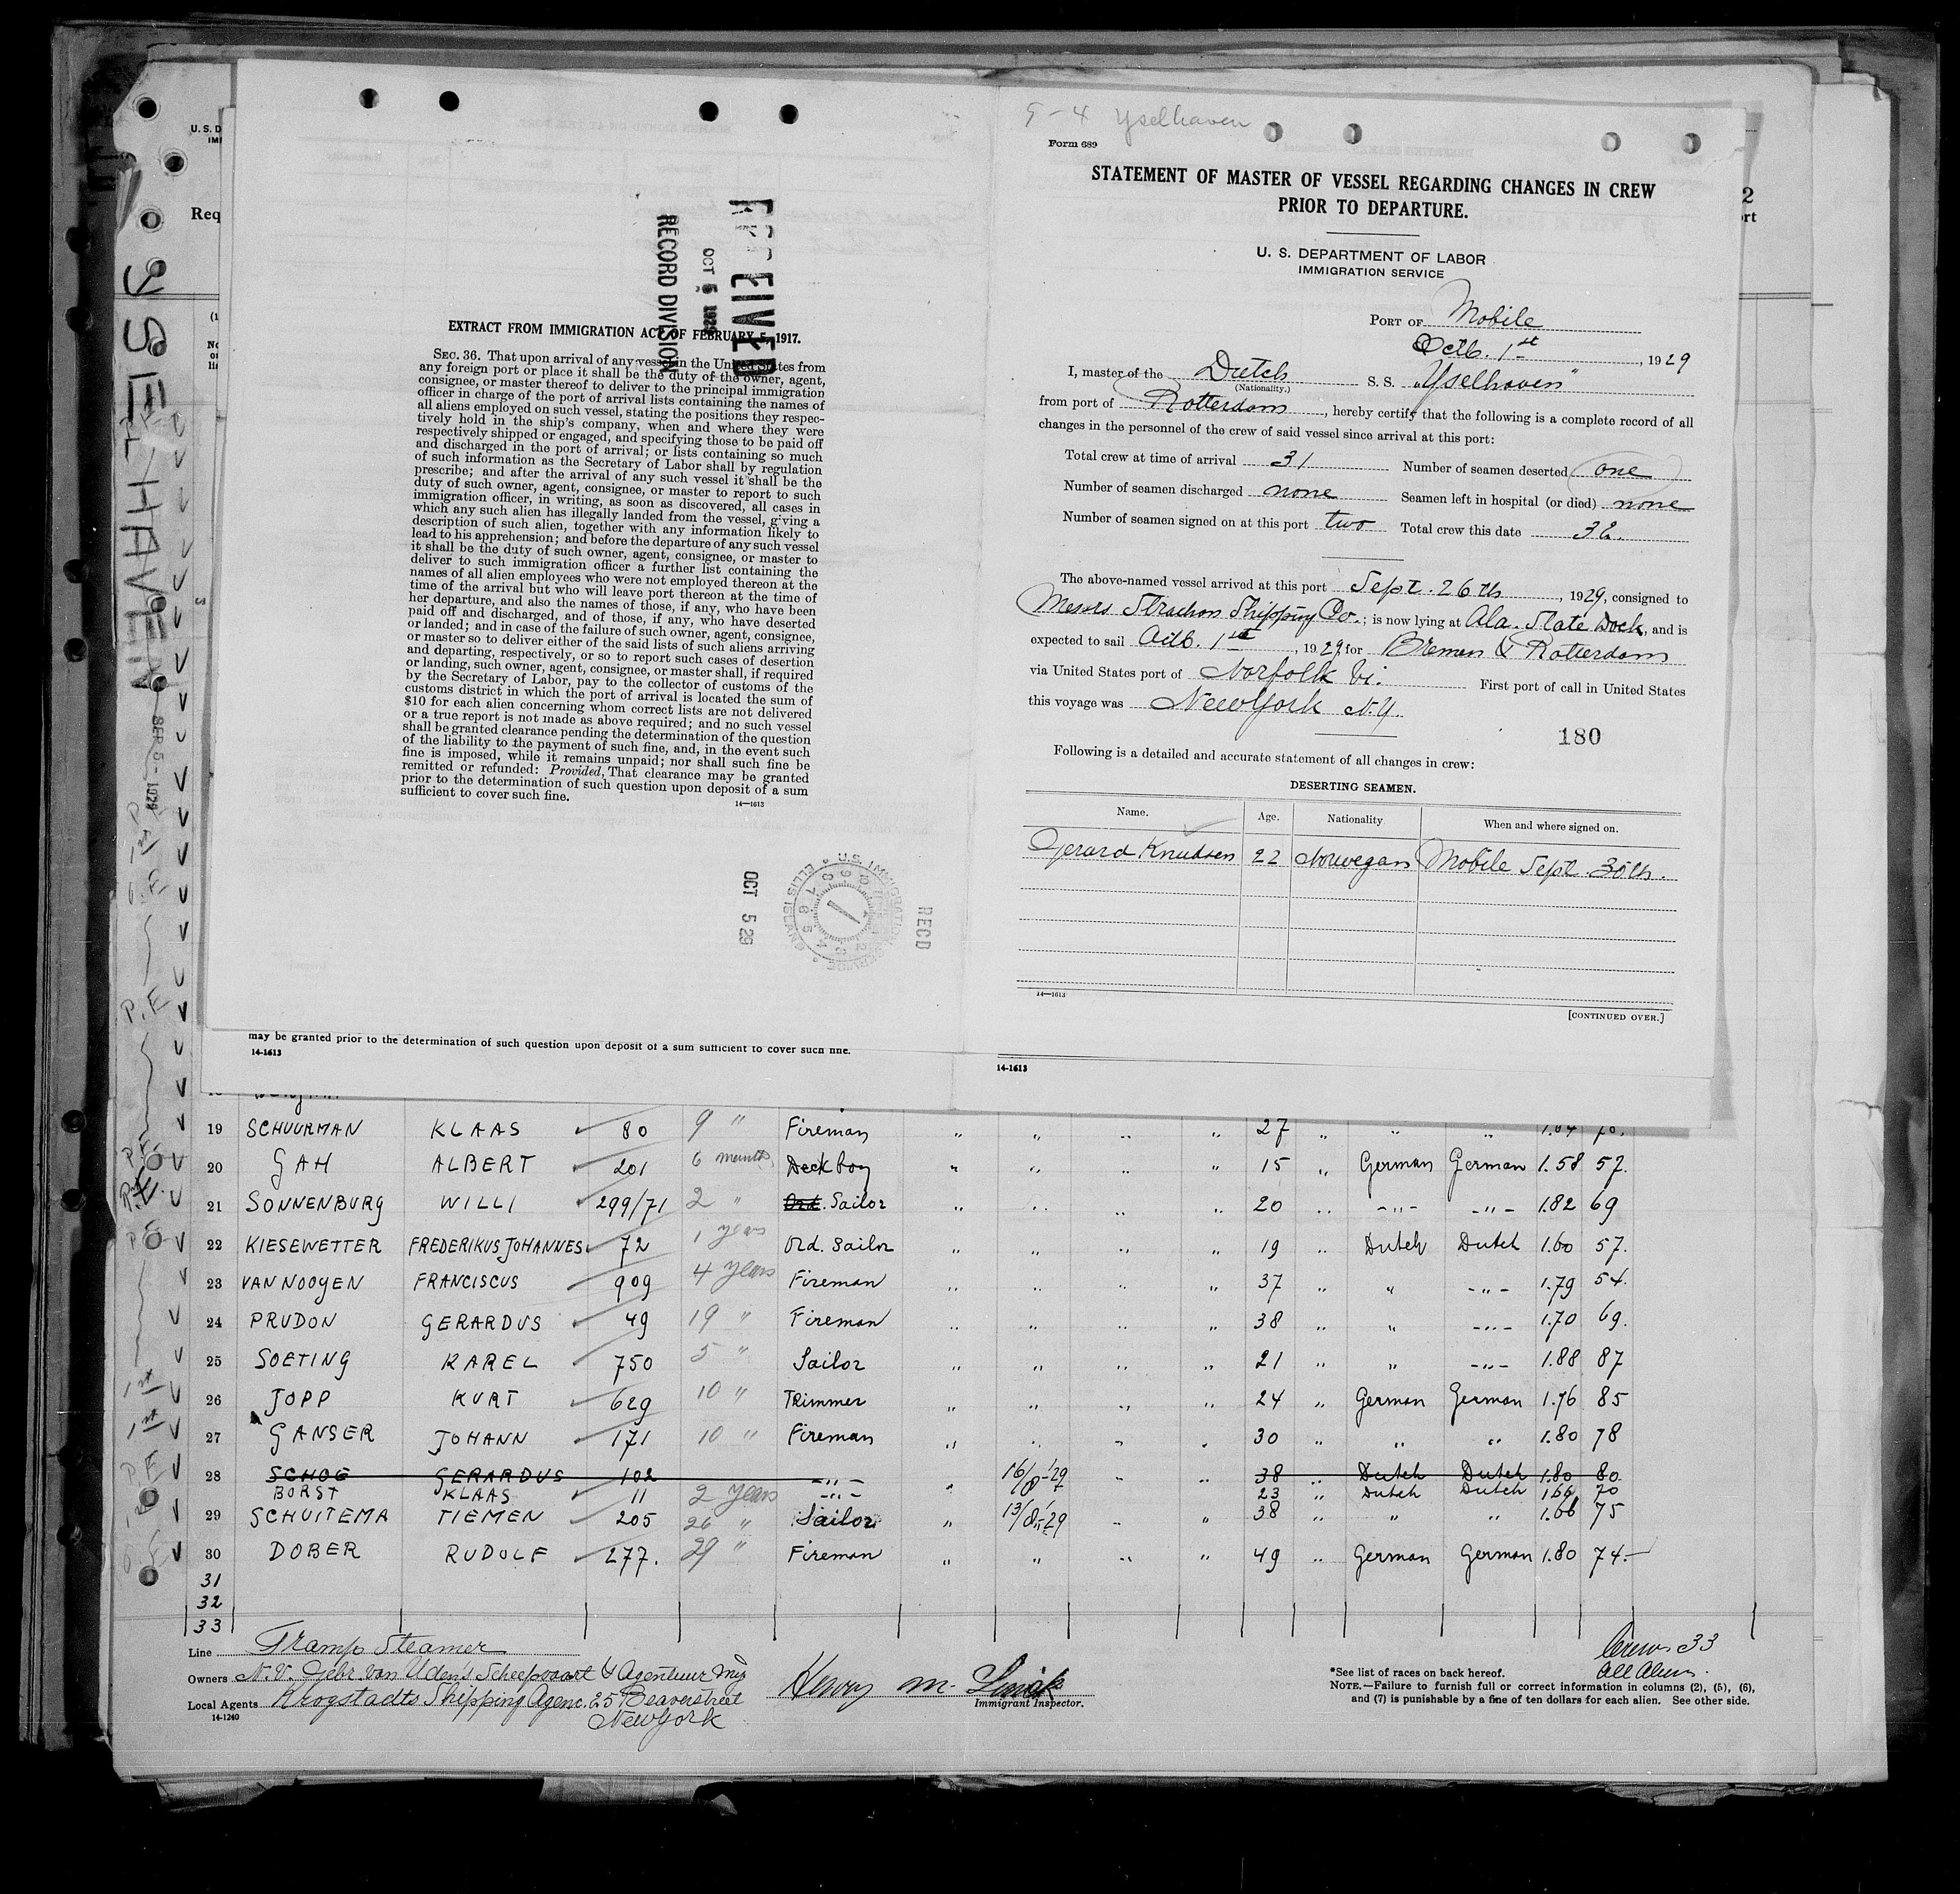 U. S. D
IMI
Req
YSSELHAVEN
SEP 5 - 1929
RECEIVED
OCT 5 1929
RECORD DIVISION
EXTRACT FROM IMMIGRATION ACT OF FEBRUARY 5, 1917.
SEC. 36. That upon arrival of any vessel in the United States from
any foreign port or place it shall be the duty of the owner, agent,
consignee, or master thereof to deliver to the principal immigration
officer in charge of the port of arrival lists containing the names of
all aliens employed on such vessel, stating the positions they respec-
tively hold in the ship's company, when and where they were
respectively shipped or engaged, and specifying those to be paid off
and discharged in the port of arrival; or lists containing so much
of such information as the Secretary of Labor shall by regulation
prescribe; and after the arrival of any such vessel it shall be the
duty of such owner, agent, consignee, or master to report to such
immigration officer, in writing, as soon as discovered, all cases in
which any such alien has illegally landed from the vessel, giving a
description of such alien, together with any information likely to
lead to his apprehension; and before the departure of any such vessel
it shall be the duty of such owner, agent, consignee, or master to
deliver to such immigration officer a further list containing the
names of all alien employees who were not employed thereon at the
time of the arrival but who will leave port thereon at the time of
her departure, and also the names of those, if any, who have been
paid off and discharged, and of those, if any, who have deserted
or landed; and in case of the failure of such owner, agent, consignee,
or master so to deliver either of the said lists of such aliens arriving
and departing, respectively, or so to report such cases of desertion
or landing, such owner, agent, consignee, or master shall, if required
by the Secretary of Labor, pay to the collector of customs of the
customs district in which the port of arrival is located the sum of
$10 for each alien concerning whom correct lists are not delivered
or a true report is not made as above required; and no such vessel
shall be granted clearance pending the determination of the question
of the liability to the payment of such fine, and, in the event such
fine is imposed, while it remains unpaid; nor shall such fine be
remitted or refunded: Provided, That clearance may be granted
prior to the determination of such question upon deposit of a sum
sufficient to cover such fine.
14—1613
OCT 5 29
U.S. IMMIGRATION SERVICE ELLIS ISLAND
RECD
may be granted prior to the determination of such question upon deposit of a sum sufficient to cover such fine.
14-1613
5-4 Yselhaven
Form 689
STATEMENT OF MASTER OF VESSEL REGARDING CHANGES IN CREW
PRIOR TO DEPARTURE.
U. S. DEPARTMENT OF LABOR
IMMIGRATION SERVICE
PORT OF Mobile
Octb. 1st, 1929
I, master of the Dutch S. S. "Yselhaven"
(Nationality.)
from port of Rotterdam, hereby certify that the following is a complete record of all
changes in the personnel of the crew of said vessel since arrival at this port:
Total crew at time of arrival 31 Number of seamen deserted one
Number of seamen discharged none Seamen left in hospital (or died) none
Number of seamen signed on at this port two Total crew this date 32.
The above-named vessel arrived at this port Sept. 26th, 1929, consigned to
Messrs Strachan Shipping Co.; is now lying at Ala. State Dock, and is
expected to sail Octb. 1st, 1929, for Bremen & Rotterdam
via United States port of Norfolk Vi. First port of call in United States
this voyage was New York N.Y.
180
Following is a detailed and accurate statement of all changes in crew:
DESERTING SEAMEN.
Name. Age. Nationality When and where signed on.
Gerard Knudsen 22 Norwegan Mobile Sept. 30th.
14—1613
[CONTINUED OVER.]
14-1613
19 SCHUURMAN KLAAS 80 9 " Fireman " " " " 27 " " " 1.64 70.
20 GAH ALBERT 201 6 months Deckboy " " " " 15 " German German 1.58 57.
21 SONNENBURG WILLI 299/71 2 " Ord. Sailor " " " " 20 " -"- -"- 1.82 69
22 KIESEWETTER FREDERIKUS JOHANNES 72 1 years Ord. Sailor " " " " 19 " Dutch Dutch 1.60 57.
23 VAN NOOYEN FRANCISCUS 909 4 years Fireman " " " " 37 " " -"- 1.79 54.
24 PRUDON GERARDUS 49 19 " Fireman " " " " 38 " " -"- 1.70 69.
25 SOETING KAREL 750 5 " Sailor " " " " 21 " " -"- 1.88 87
26 JOPP KURT 629 10 " Trimmer " " " " 24 " German German 1.76 85
27 GANSER JOHANN 171 10 " Fireman " " " " 30 " " " 1.80 78
28 SCHOE GERARDUS 102 -"- " 16/8-'29 " " 38 " Dutch Dutch 1.80 80.
BORST KLAAS 11 2 years -"- 23 " Dutch Dutch 1.66 70
29 SCHUITEMA TIEMEN 205 26 " Sailor " 13/8-'29 " " 38 " " " 1.66 75
30 DOBER RUDOLF 277. 29 " Fireman " " " " 49 " German German 1.80 74.-
31
32
33
Line Tramp Steamer
Owners N.V. Gebr. van Uden's Scheepvaart & Agentuur Mij
Local Agents Krogstadts Shipping Agenc. 25 Beaverstreet
New York
14-1240
Henry M.
Immigrant Inspector.
Crew 33
All Aliens.
*See list of races on back hereof.
NOTE.—Failure to furnish full or correct information in columns (2), (5), (6),
and (7) is punishable by a fine of ten dollars for each alien. See other side.